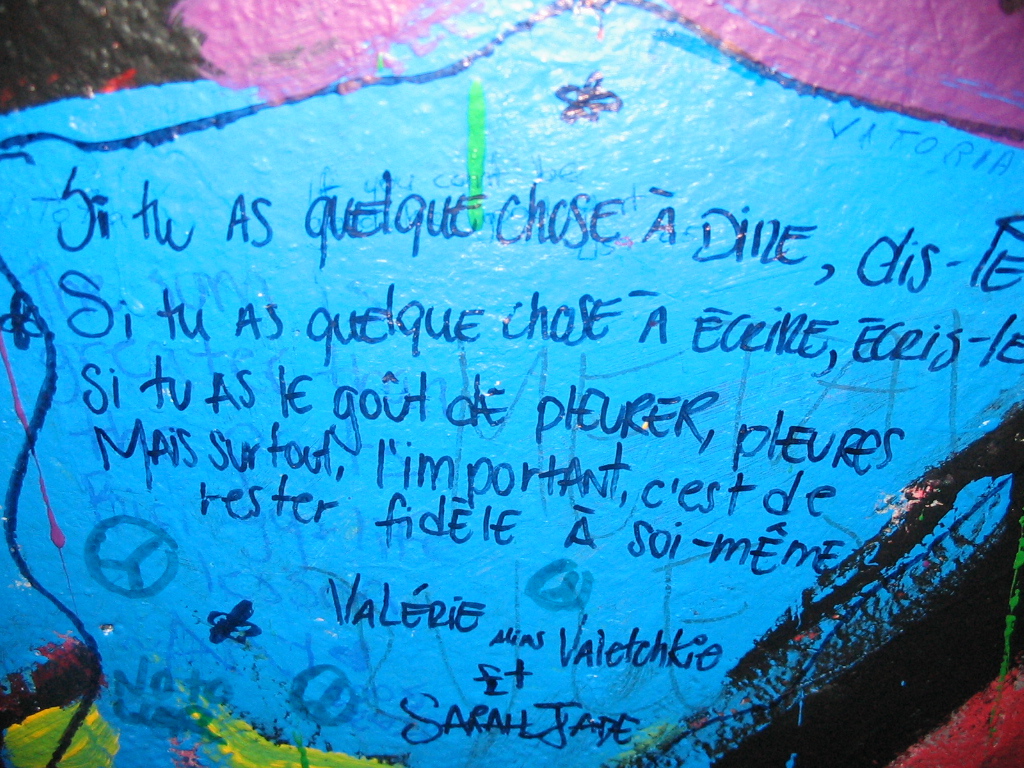 VATORIA
Si tu as quelque chose à dire, dis-le
Si tu as quelque chose à écrire, écris-le
Si tu as le goût de pleurer, pleures
Mais surtout, l'important, c'est de
rester fidèle à soi-même
Valérie
Valetchkie
et
Sarah Jade